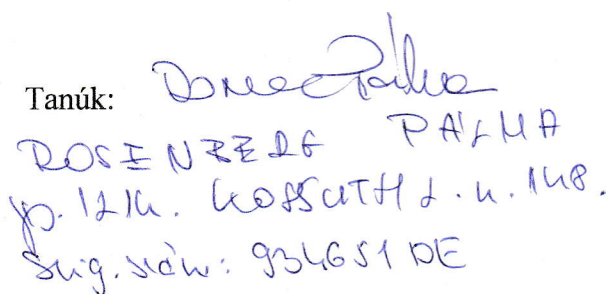 Tanúk:
ROSENBERG PÁLMA
Bp. 1214. KOSSUTH L. u. 148.
Szig. szám: 934651 DE